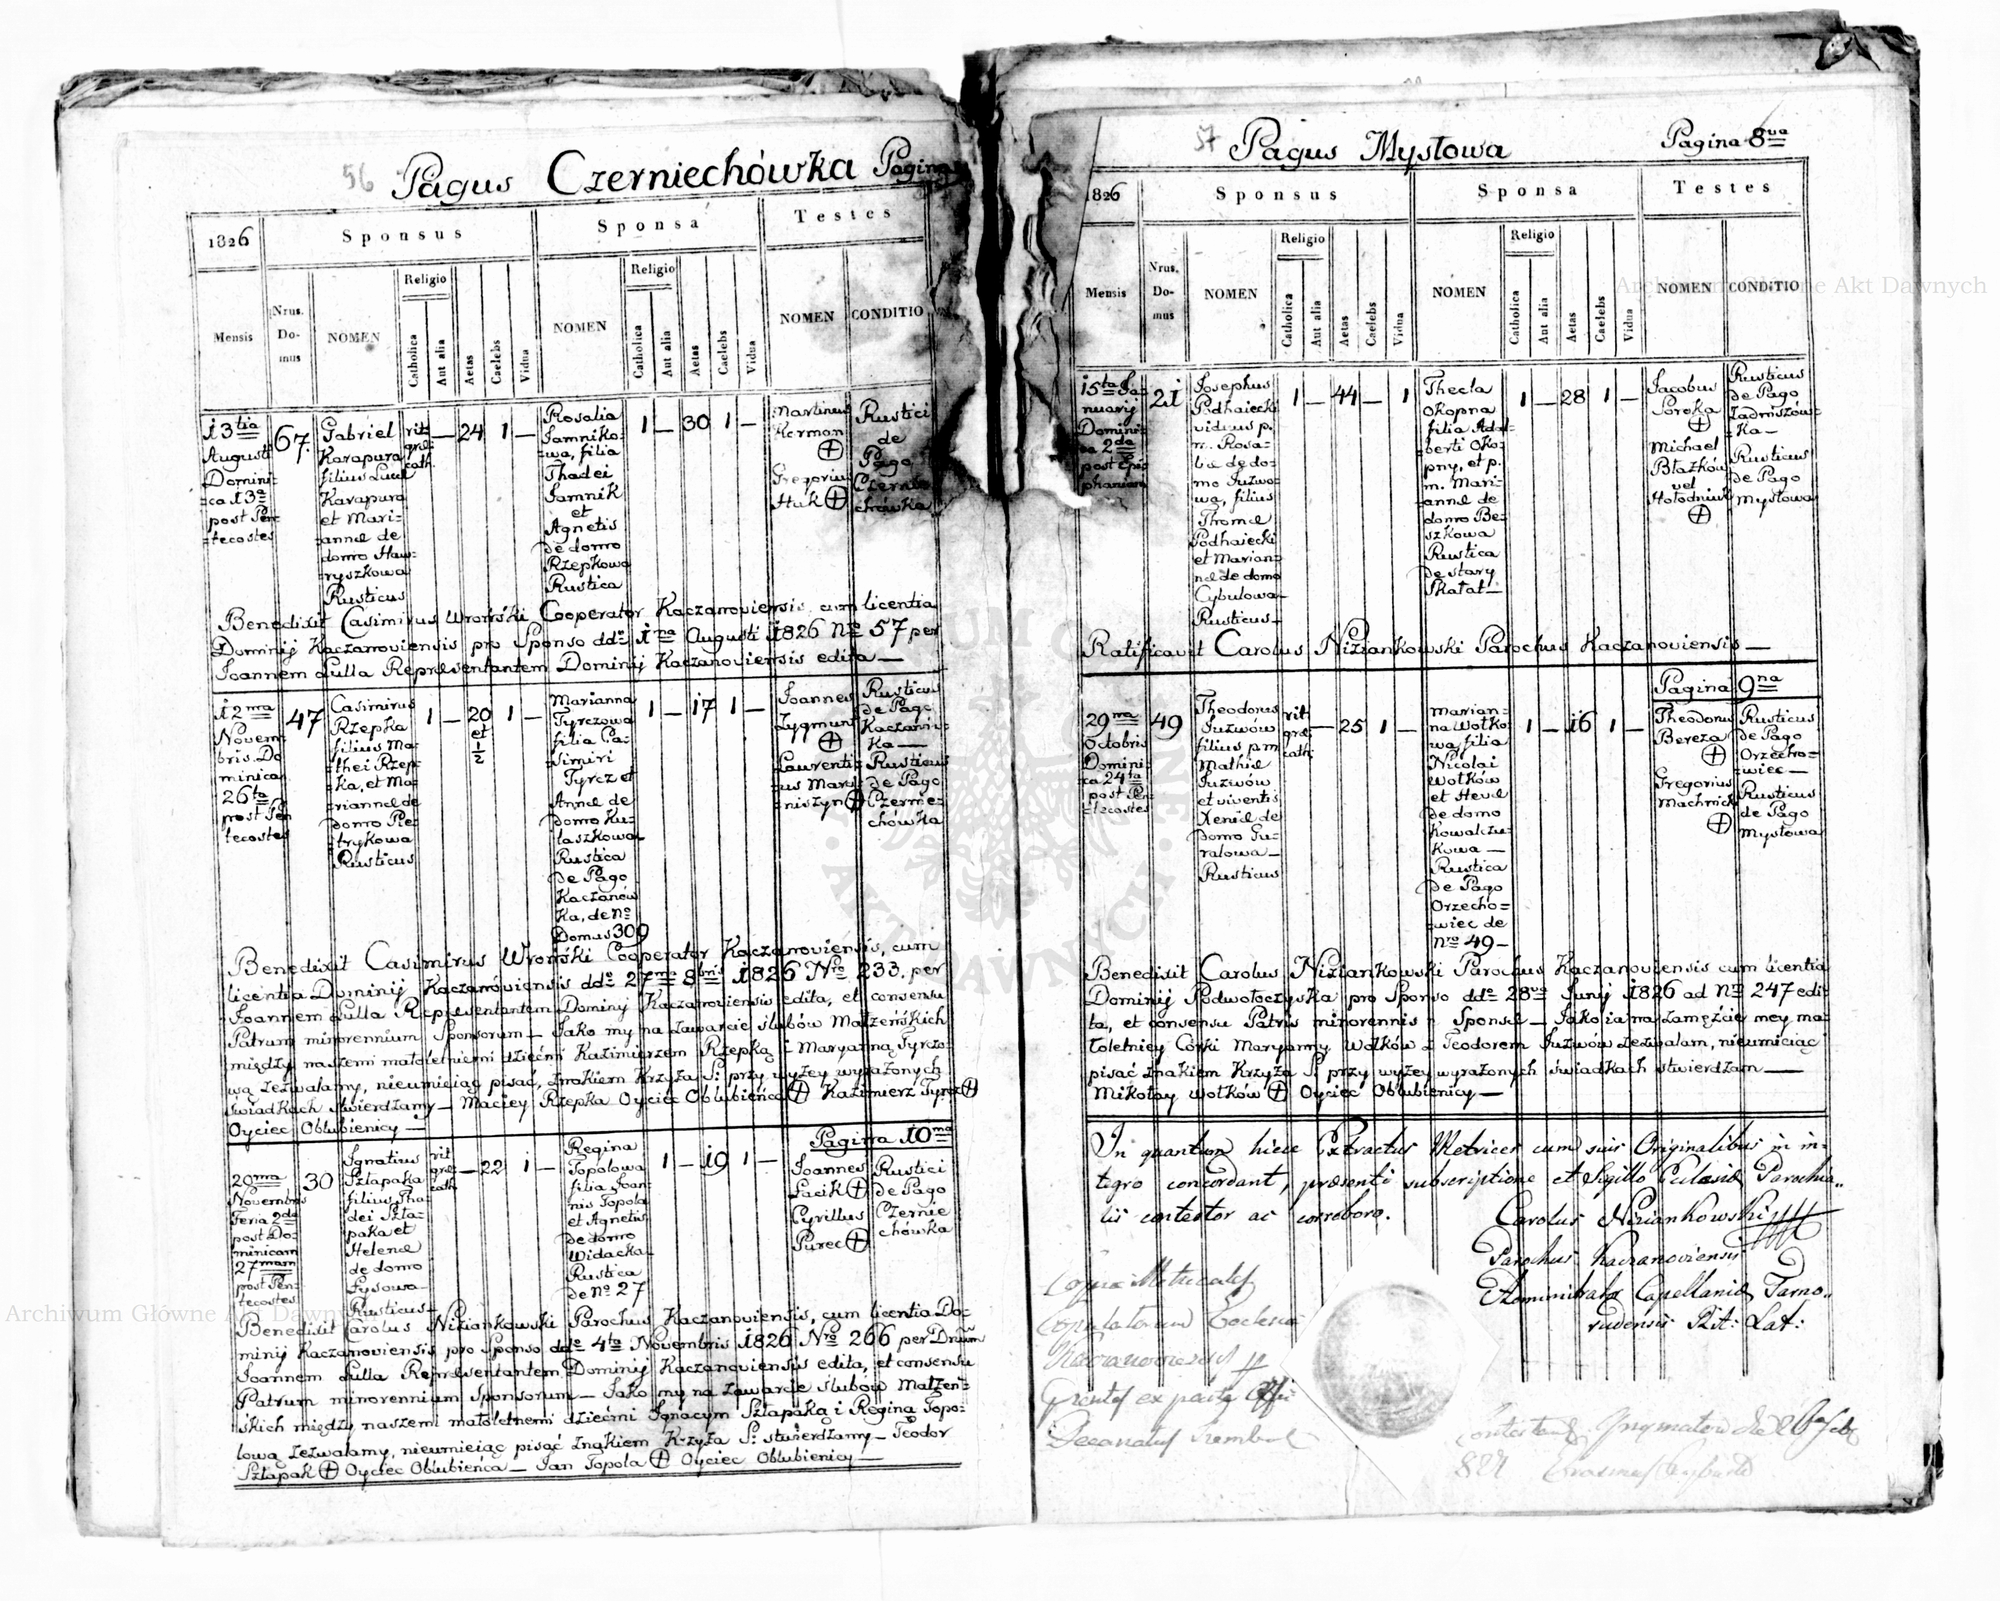 56 Pagus Czerniechówka Pagina
1826 Sponsus Sponsa Testes
Mensis Nrus. Do- mus NOMEN Religio Catholica Aut alia Aetas Caelebs Vidua NOMEN Religio Catholica Aut alia Aetas Caelebs Vidua NOMEN CONDITIO
13tia
Augusti
Domini-
ca 13a
post Pen-
tecostes
67.
Gabriel
Karapura
filius Lucæ
Karapura
et Mari-
annæ de
domo Haw-
ryszkowa
Rusticus
rit
græ
cath.
— 24 1 —
Rosalia
Jamniko-
wa, filia
Thadei
Jamnik
et
Agnetis
de domo
Rzepkowa
Rustica
1 — 30 1 —
Martinus
Herman
Gregorius
Huk
Rustici
de
Pago
Czernie-
chówka
Benedixit Casimirus Wroński Cooperator Kaczanoviensis, cum licentia
Dominij Kaczanoviensis pro Sponso ddo 1ma Augusti 1826 No 57 per
Joannem Lulla Representantem Dominij Kaczanoviensis edita —
12ma
Novem-
bris Do-
minica
26ta
post Pen-
tecostes
47
Casimirus
Rzepka
filius Ma-
thei Rzep-
ka, et Ma-
riannæ de
domo Pie-
trykowa
Rusticus
1 — 20
et
1
2
1 —
Marianna
Tyrczowa
filia Ca-
simiri
Tyrcz et
Annæ de
domo Ku-
laszkowa
Rustica
de Pago
Kaczanów-
ka, de No
Domus 309
1 — 17 1 —
Joannes
Zygmunt
Laurenti-
us Mary-
niszyn
Rusticus
de Pago
Kaczanów-
ka —
Rusticus
de Pago
Czernie-
chówka
Benedixit Casimirus Wroński Cooperator Kaczanoviensis, cum
licentia Dominij Kaczanoviensis ddo 27ma 8bris 1826 Nro 233. per
Joannem Lulla Representantem Dominij Kaczanoviensis edita, et consensu
Patrum minorennium Sponsorum — Jako my na zawarcie ślubów Małżeńskich
między naszemi małoletniemi dziećmi Kazimierzem Rzepką i Maryanną Tyrczo-
wą zezwalamy, nieumieiąc pisać, znakiem Krzyża S: przy wyżey wyrażonych
świadkach stwierdzamy — Maciey Rzepka Oyciec Oblubieńca Kazimierz Tyrcz
Oyciec Oblubienicy —
Pagina 10ma
20ma
Novembris
Feria 2da
post Do-
minicam
27mam
post Pen-
tecostes
30
Ignatius
Szłapaka
filius Tha-
dei Szła-
paka et
Helenæ
de domo
Łysowa
Rusticus
rit
græ
cath
— 22 1 —
Regina
Topolowa
filia Joan-
nis Topola
et Agnetis
de domo
Widacka
Rustica
de No 27
1 — 19 1 —
Joannes
Łacik
Cyrillus
Purec
Rustici
de Pago
Czernie
chówka
Benedixit Carolus Niziankowski Parochus Kaczanoviensis, cum licentia Do-
minij Kaczanoviensis pro Sponso ddo 4ta Novembris 1826 Nro 266 per Dnum
Joannem Lulla Representantem Dominij Kaczanoviensis edita, et consensu
Patrum minorennium Sponsorum — Jako my na zawarcie ślubów Małżeń-
skich między naszemi małoletniemi dziećmi Ignacym Szłapaką i Reginą Topo-
lową zezwalamy, nieumieiąc pisać znakiem Krzyża S: stwierdzamy — Teodor
Szłapak Oyciec Oblubieńca — Jan Topola Oyciec Oblubienicy —
57 Pagus Mysłowa Pagina 8va
1826 Sponsus Sponsa Testes
Mensis Nrus. Do- mus NOMEN Religio Catholica Aut alia Aetas Caelebs Vidua NOMEN Religio Catholica Aut alia Aetas Caelebs Vidua NOMEN CONDITIO
15ta Ja-
nuarij
Domini-
ca 2da
post Epi-
phaniam
21
Josephus
Podhaiecki
viduus p.
m. Rosa-
liæ de do-
mo Juzwo-
wa, filius
Thomæ
Podhaiecki
et Marian-
næ de domo
Cybulowa
Rusticus —
1 — 44 — 1
Thecla
Okopna
filia Adal-
berti Oko-
pny, et p.
m. Mari-
annæ de
domo Be-
szkowa
Rustica
de stary
Skałat —
1 — 28 1 —
Jacobus
Soroka
Michael
Błażków
vel
Hołodniuk
Rusticus
de Pago
Zadniszów-
ka —
Rusticus
de Pago
Mysłowa
Ratificavit Carolus Niziankowski Parochus Kaczanoviensis —
Pagina 9na
29ma
Octobris
Domini-
ca 24ta
post Pen-
tecostes
49
Theodorus
Juzwów
filius pm
Mathiæ
Juzwów
et viventis
Xeniæ de
domo Gu-
ralowa —
Rusticus
rit
græ
cath
— 25 1 —
Marian-
na Wołko-
wa, filia
Nicolai
Wołków
et Hevæ
de domo
Kowalczu-
kowa —
Rustica
de Pago
Orzecho-
wiec de
Nro 49 —
1 — 16 1 —
Theodorus
Bereza
Gregorius
Machnick
Rusticus
de Pago
Orzecho-
wiec —
Rusticus
de Pago
Mysłowa
Benedixit Carolus Niziankowski Parochus Kaczanoviensis cum licentia
Dominij Podwołoczyska pro Sponso ddo 28va Junij 1826 ad No 247 edi-
ta, et consensu Patris minorennis Sponsæ — Jako ia na zamęźcie mey ma-
łoletniey Córki Maryanny Wołków z Teodorem Juzwów zezwalam, nieumieiąc
pisać znakiem Krzyża S: przy wyżey wyrażonych świadkach stwierdzam —
Mikołay Wołków Oyciec Oblubienicy —
In quantum hicce Extractus Metrices cum suis Originalibus in in-
tegro concordant, præsenti subscriptione et Sigillo Ecclesiæ Parochia-
lis contestor ac corroboro.
Carolus Niziankowski
Parochus Kaczanoviensis
Administrator Capellaniæ Tarno-
rudensis Rit: Lat:
Copia
Copulatorum Ecclesiæ
Kaczanoviensis
ex parte
Decanatus
ARCHIWUM GŁÓWNE AKT DAWNYCH
Archiwum Główne Akt Dawnych
Archiwum Główne Akt Dawnych